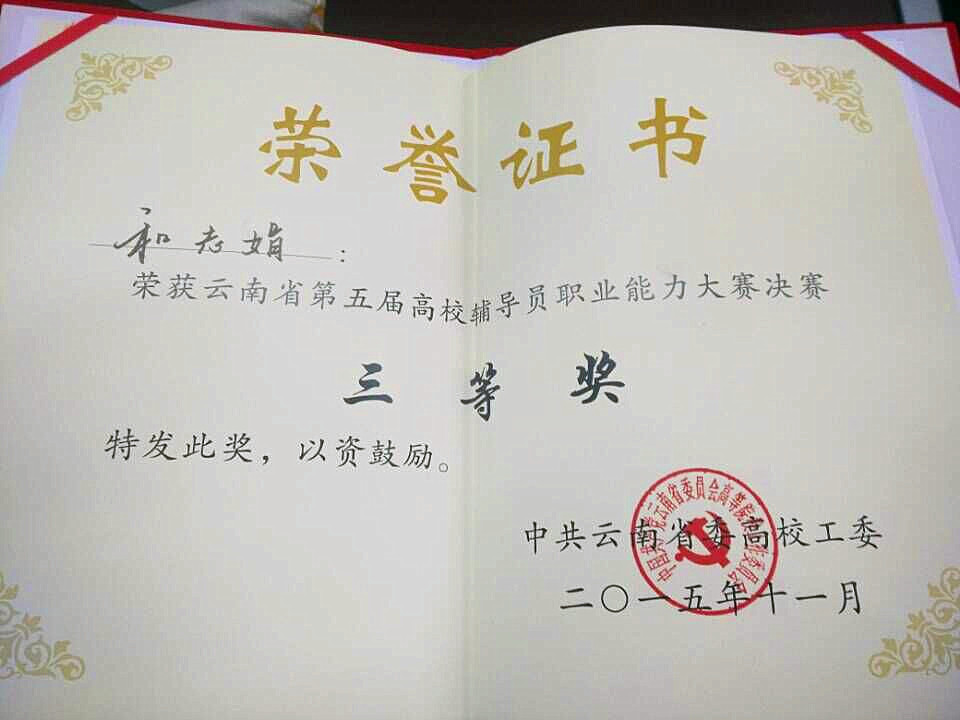 荣誉证书
和志娟：
荣获云南省第五届高校辅导员职业能力大赛决赛
三等奖
特发此奖，以资鼓励。
中共云南省委高校工委
二〇一五年十一月
中国共产党云南省委员会高等院校工作委员会